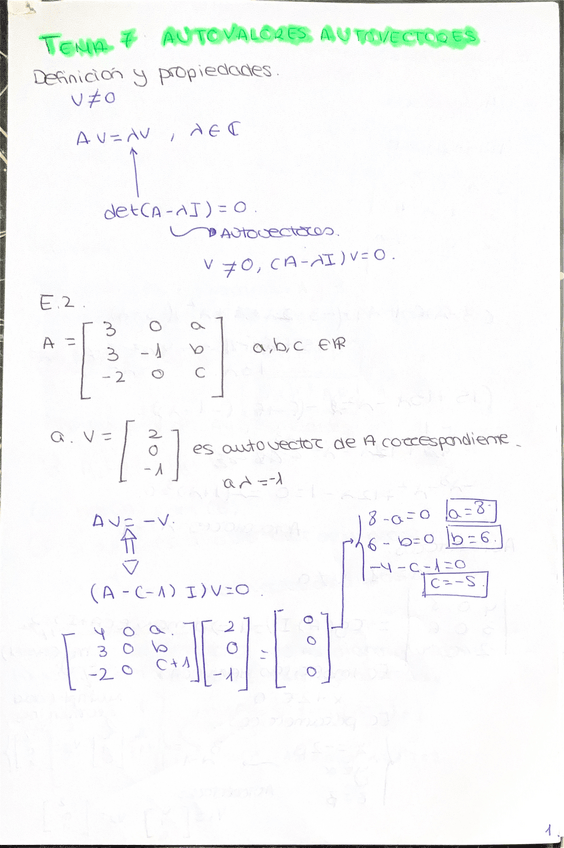 TEMA 7 AUTOVALORES AUTOVECTORES
Definición y propiedades.
V≠0
AV=λV , λ∈ℂ
det(A-λI)=0.
AUTOVECTORES.
V≠0, (A-λI)V=0.
E.2.
A = [ 3 0 a
3 -1 b
-2 0 c ] a,b,c ∈ℝ
a. V = [ 2
0
-1 ] es autovector de A correspondiente
a λ=-1
AV=-V.
(A-(-1)I)V=0.
[ 4 0 a.
3 0 b
-2 0 c+1 ] [ 2
0
-1 ] = [ 0
0
0 ]
8-a=0 a=8.
6-b=0 b=6.
-4-c-1=0
c=-5.
1.